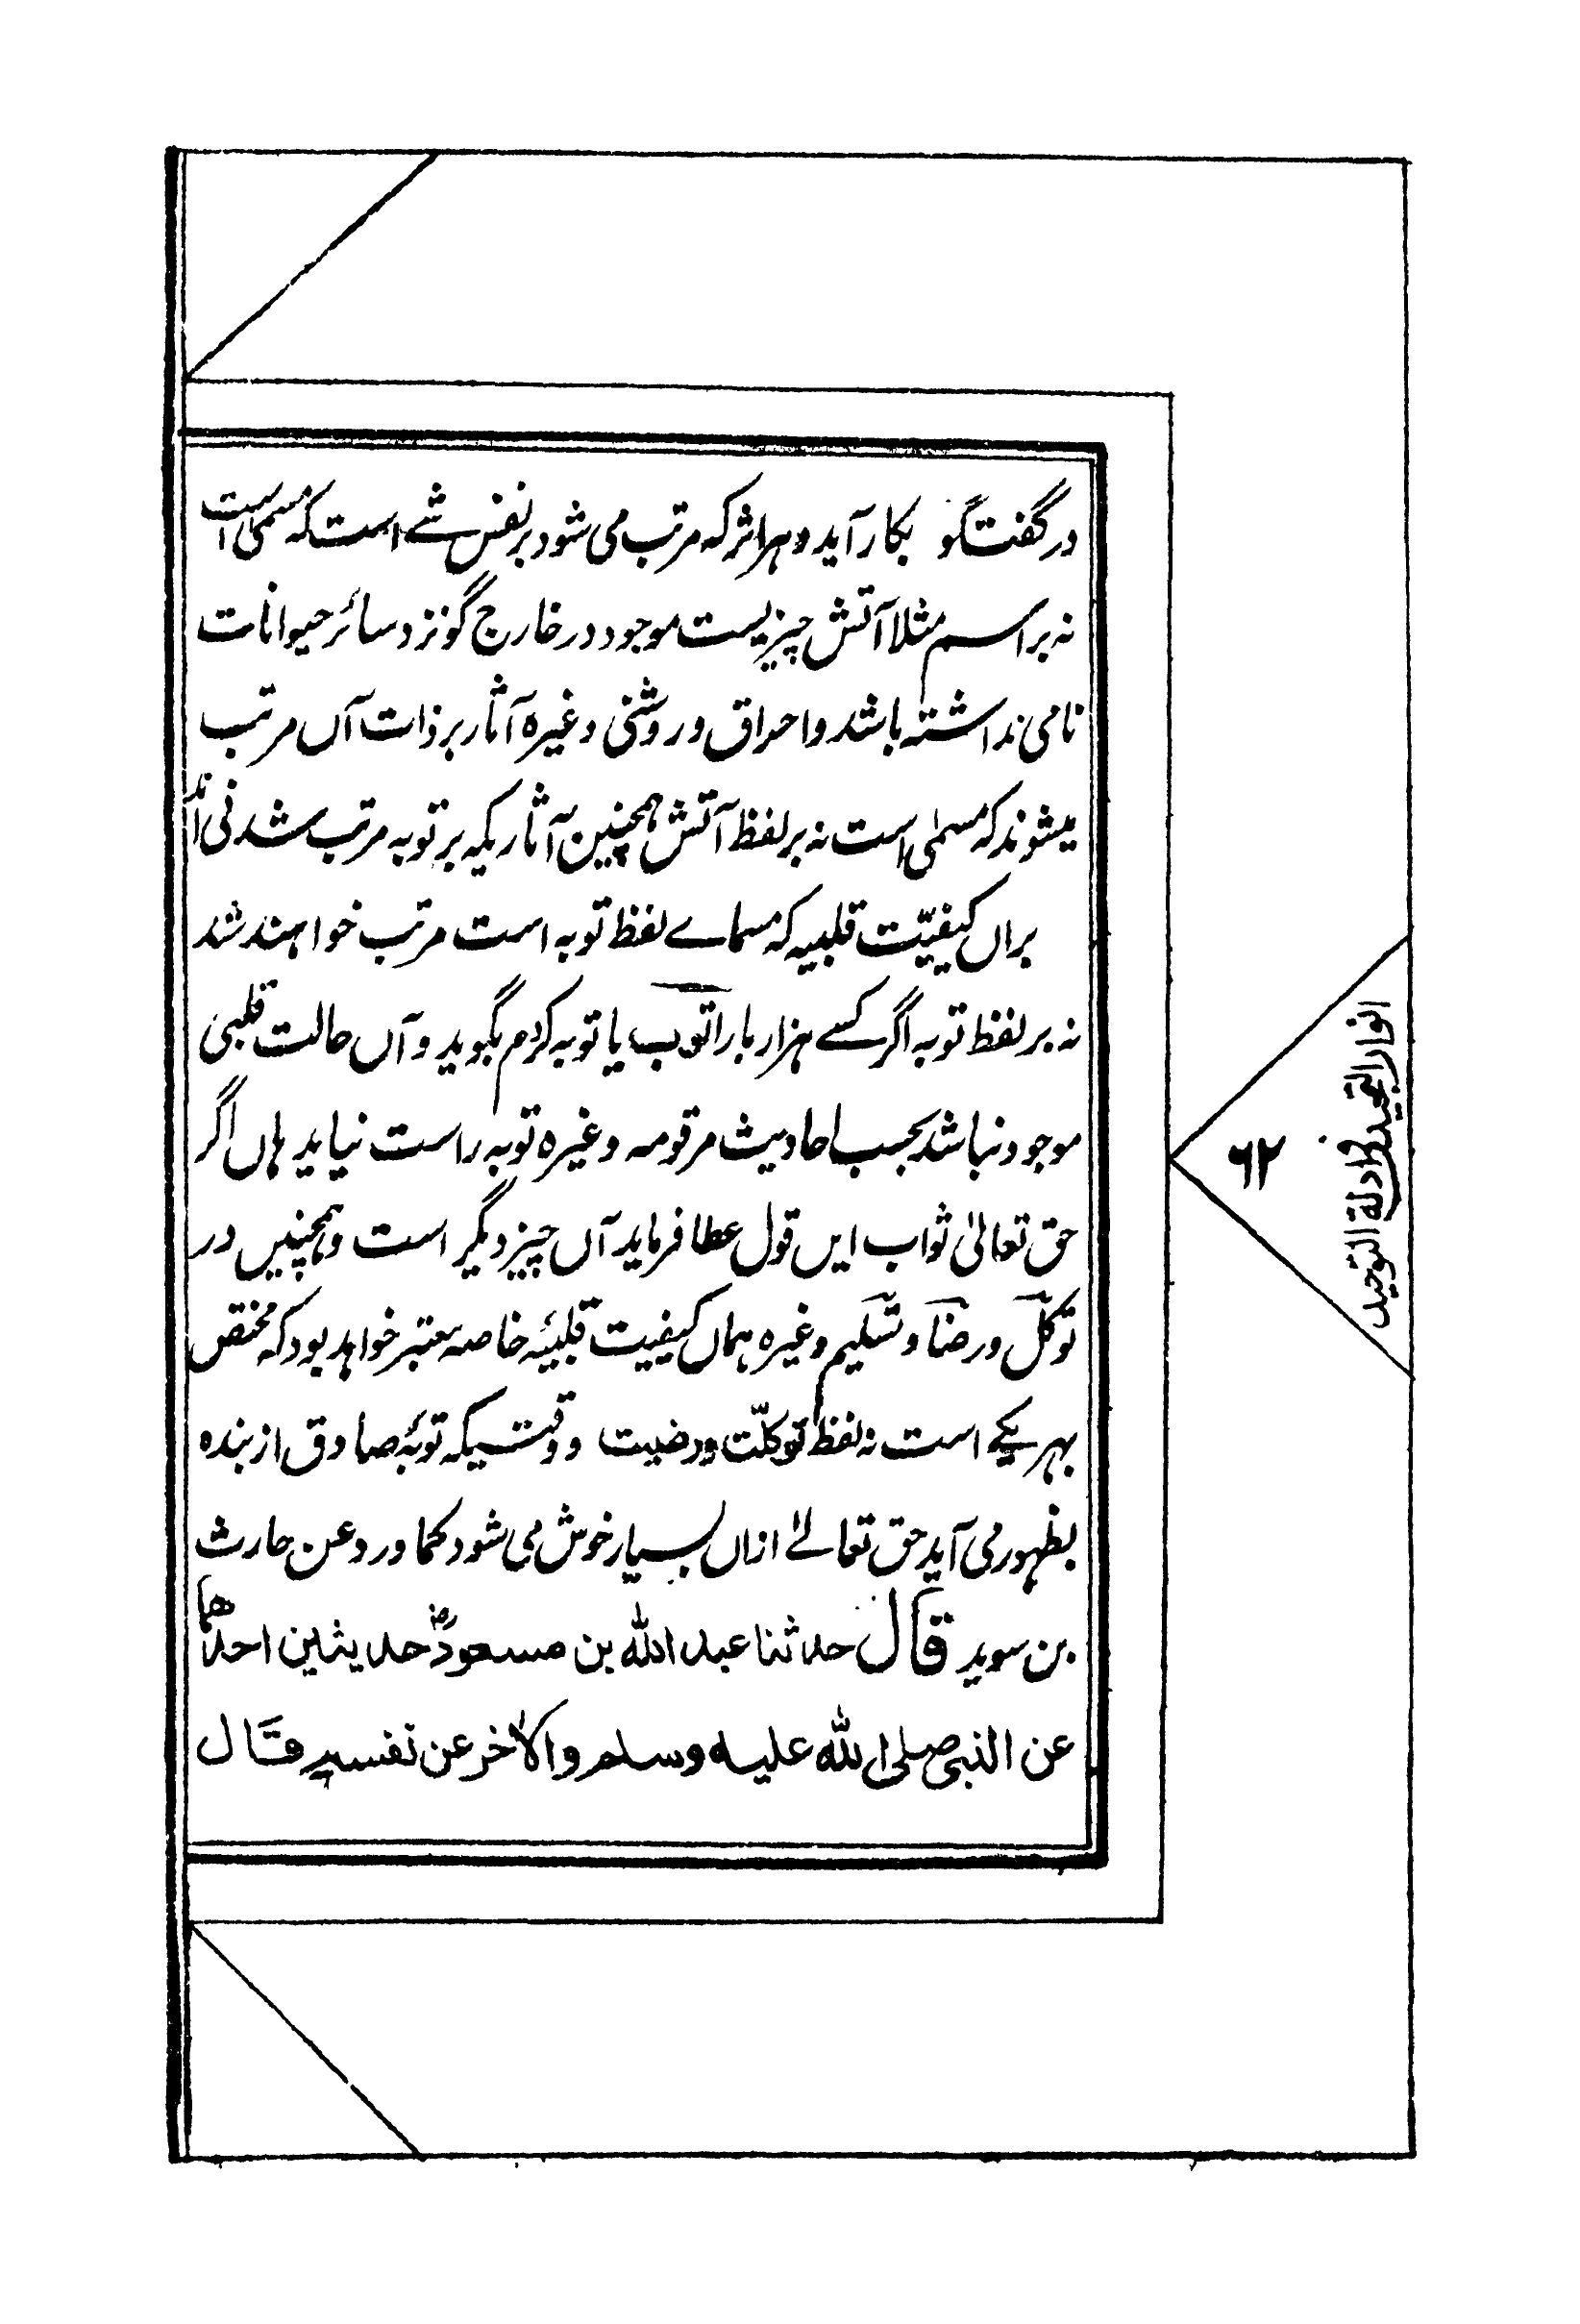 در گفتگو بکار آید و هر اثر که مرتب می شود بر نفس شے است که مسمی است
نه بر اسم مثلا آتش چیزیست موجود در خارج گو نزد سائر حیوانات
نامی نداشته باشد و احراق و روشنی وغیره آثار بر ذات آں مرتب
میشوند که مسمٰی است نه بر لفظ آتش همچنین آثاریکه بر توبه مرتب شدنی اند
براں کیفیّت قلبیه که مسماے لفظ توبه است مرتب خواهند شد
نه بر لفظ توبه اگر کسے هزار بار اتوب یا توبه کردم بگوید و آں حالت قلبی
موجود نباشد بحسب احادیث مرقومه وغیره توبه راست نیاید ہاں اگر
حق تعالیٰ ثواب ایں قول عطا فرماید آں چیز دیگر است و ہمچنیں در
توکّل و رضا و تسلیم وغیره ہماں کیفیت قلبیۂ خاصه معتبر خواهد بود که مختص
بہر یکے است نه لفظ توکلّت و رضیت و وقتیکه توبۂ صادق از بنده
بظهور می آید حق تعالےٰ ازاں بسیار خوش می شود کما ورد عن حارث
بن سوید قال حدثنا عبد الله بن مسعودؓ حدیثین احدهما
عن النبی صلی الله علیه وسلم والاٰخر عن نفسه قال
۶۲
انوار التجید فی ادلة التوحید